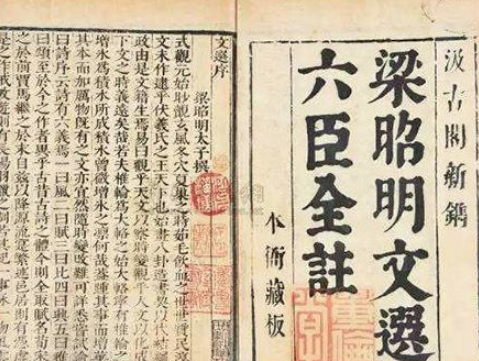 汲古閣新鐫
梁昭明文選
六臣全註
本衙藏板
文選序
梁昭明太子撰
式觀元始眇覿玄風冬穴夏巢之時茹毛飲血之世世質民
文未作逮乎伏羲氏之王天下也始畫八卦造書契以
政由是文籍生焉易曰觀乎天文以察時變觀乎人文以化成
下文之時義遠矣哉若夫椎輪為大輅之始大輅寧有椎輪之
質增冰為積水所成積水曾微增冰之凜何哉蓋踵其事而增華
其本而加厲物既有之文亦宜然隨時變改難可詳悉嘗試論
曰詩序云詩有六義焉一曰風二曰賦三曰比四曰興五曰雅
曰頌至於今之作者異乎古昔古詩之體今則全取賦名荀宋
之於前賈馬繼之於末自茲以降源流寔繁述邑居則有憑虛
是之作戒畋遊則有長楊羽獵之制若其紀一事詠一物風